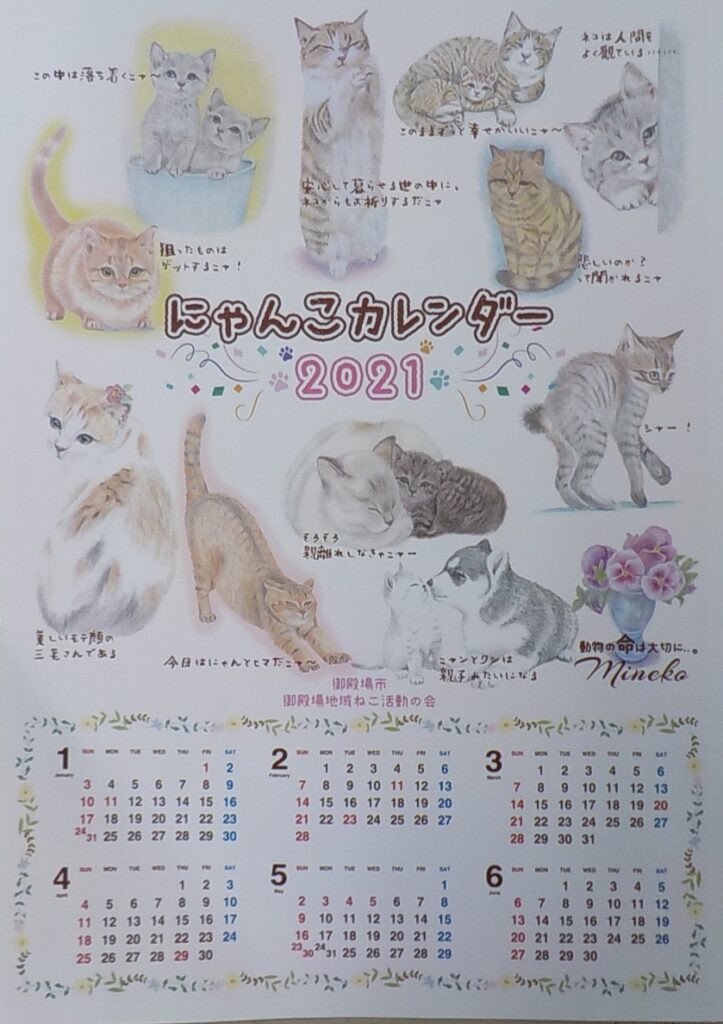 この中は落ち着くニャ〜
ネコは人間を
よく観ている……
このままずっと幸せがいいニャ〜
安心して暮らせる世の中に、
ネコからもお祈りするだニャ
狙ったものは
ゲットするニャ！
悲しいのか？
って聞かれるニャ
にゃんこカレンダー
2021
シャー！
そろそろ
親離れしなきゃニャー
美しいモテ顔の
三毛さんである
今日はにゃんとヒマだニャ〜
ニャンとワンは
親子みたいになる
動物の命は大切に..。
Mineko
御殿場市
御殿場地域ねこ活動の会
1 January
SUN MON TUE WED THU FRI SAT
1 2
3 4 5 6 7 8 9
10 11 12 13 14 15 16
17 18 19 20 21 22 23
24/31 25 26 27 28 29 30
2 February
SUN MON TUE WED THU FRI SAT
1 2 3 4 5 6
7 8 9 10 11 12 13
14 15 16 17 18 19 20
21 22 23 24 25 26 27
28
3 March
SUN MON TUE WED THU FRI SAT
1 2 3 4 5 6
7 8 9 10 11 12 13
14 15 16 17 18 19 20
21 22 23 24 25 26 27
28 29 30 31
4 April
SUN MON TUE WED THU FRI SAT
1 2 3
4 5 6 7 8 9 10
11 12 13 14 15 16 17
18 19 20 21 22 23 24
25 26 27 28 29 30
5 May
SUN MON TUE WED THU FRI SAT
1
2 3 4 5 6 7 8
9 10 11 12 13 14 15
16 17 18 19 20 21 22
23/30 24/31 25 26 27 28 29
6 June
SUN MON TUE WED THU FRI SAT
1 2 3 4 5
6 7 8 9 10 11 12
13 14 15 16 17 18 19
20 21 22 23 24 25 26
27 28 29 30